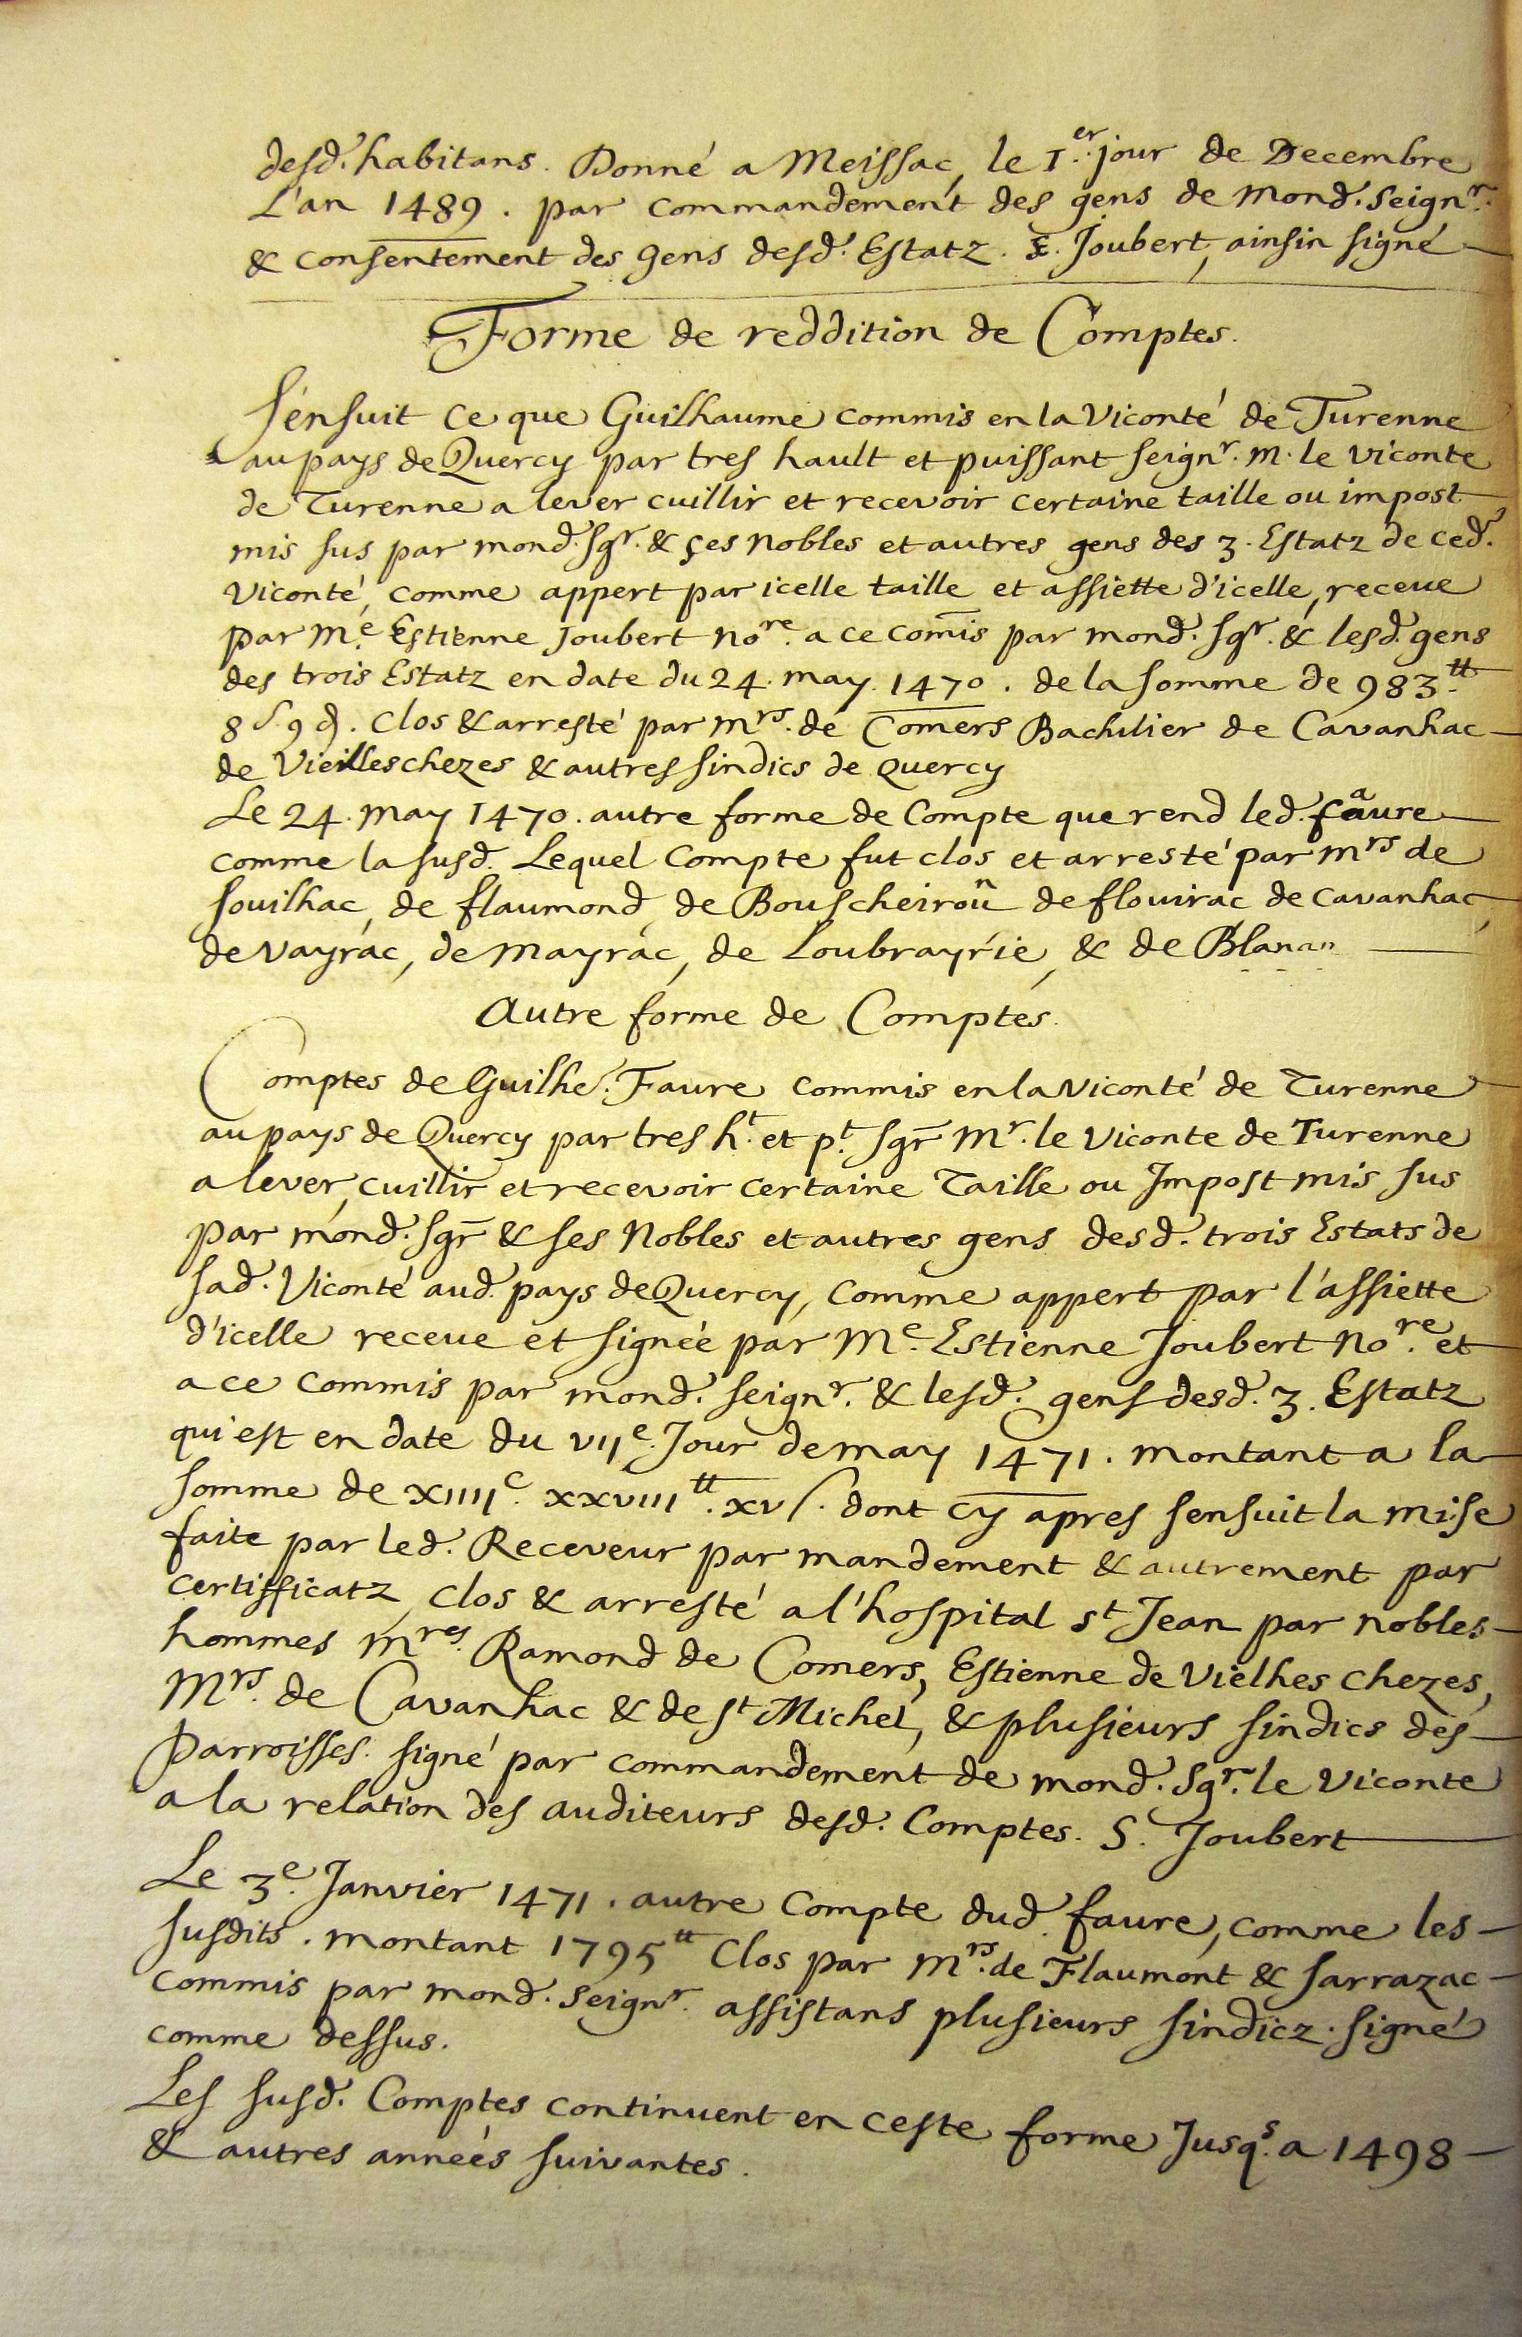 desd. habitans. Donné a Meissac, le 1.er jour de Decembre
L'an 1489. par commandement des gens de mond. seignr.
& consentement des gens desd. Estatz. E. Joubert, ainsin signé
Forme de reddition de Comptes.
S'ensuit ce que Guilhaume commis en la Viconté de Turenne
au pays de Quercy par tres hault et puissant seignr. m. le viconte
de Turenne a lever cuillir et recevoir certaine taille ou impost
mis sus par mond. sgr. & ses nobles et autres gens des 3. Estatz de ced.
Viconté, comme appert par icelle taille et assiette d'icelle, receue
par me. Estienne Joubert nore. a ce comis par mond. sgr. & lesd. gens
des trois Estatz en date du 24. may. 1470. de la somme de 983.tt
8 s 9 d. Clos & arresté par mrs. de Comers Bachilier de Cavanhac
de Vieilleschezes & autres sindics de quercy
Le 24. may 1470. autre forme de Compte que rend led. faure
comme la susd. Lequel Compte fut clos et arresté par mrs de
souilhac, de flaumond, de Bouscheiroñ de flouirac de cavanhac,
de vayrac, de mayrac, de Loubrayrie, & de Blanan
Autre forme de Comptes.
Comptes de Guilhe. Faure commis en la viconté de Turenne
au pays de Quercy par tres ht. et pt. sgr Mr. le Viconte de Turenne
a lever, cuillir et recevoir certaine Taille ou Impost mis sus
par mond. sgr & ses Nobles et autres gens desd. trois Estats de
sad. Viconté aud. pays de Quercy, comme appert par l'assiette
d'icelle receue et signée par Me. Estienne Joubert Nore. et
a ce commis par mond. seignr. & lesd. gens desd. 3. Estatz
qui est en date du VIIe. Jour de may 1471. montant a la
somme de XIIIIc. XXVIIItt. XV s. dont cy apres sensuit la mise
faite par led. Receveur par mandement & autrement par
certifficatz, clos & arresté a l'hospital st Jean par nobles
hommes mres. Ramond de Comers, Estienne de Vielhes chezes,
Mrs. de Cavanhac & de st Michel, & plusieurs sindics des
Parroisses. signé par commandement de mond. sgr. le Viconte
a la relation des auditeurs desd. Comptes. S. Joubert
Le 3e. Janvier 1471. autre Compte dud. faure, comme les
susdits. montant 1795tt Clos par mrs. de Flaumont & sarrazac
commis par mond. seignr. assistans plusieurs sindicz. signé
comme dessus.
Les susd. Comptes continuent en ceste forme Jusqs. a 1498
& autres années suivantes.